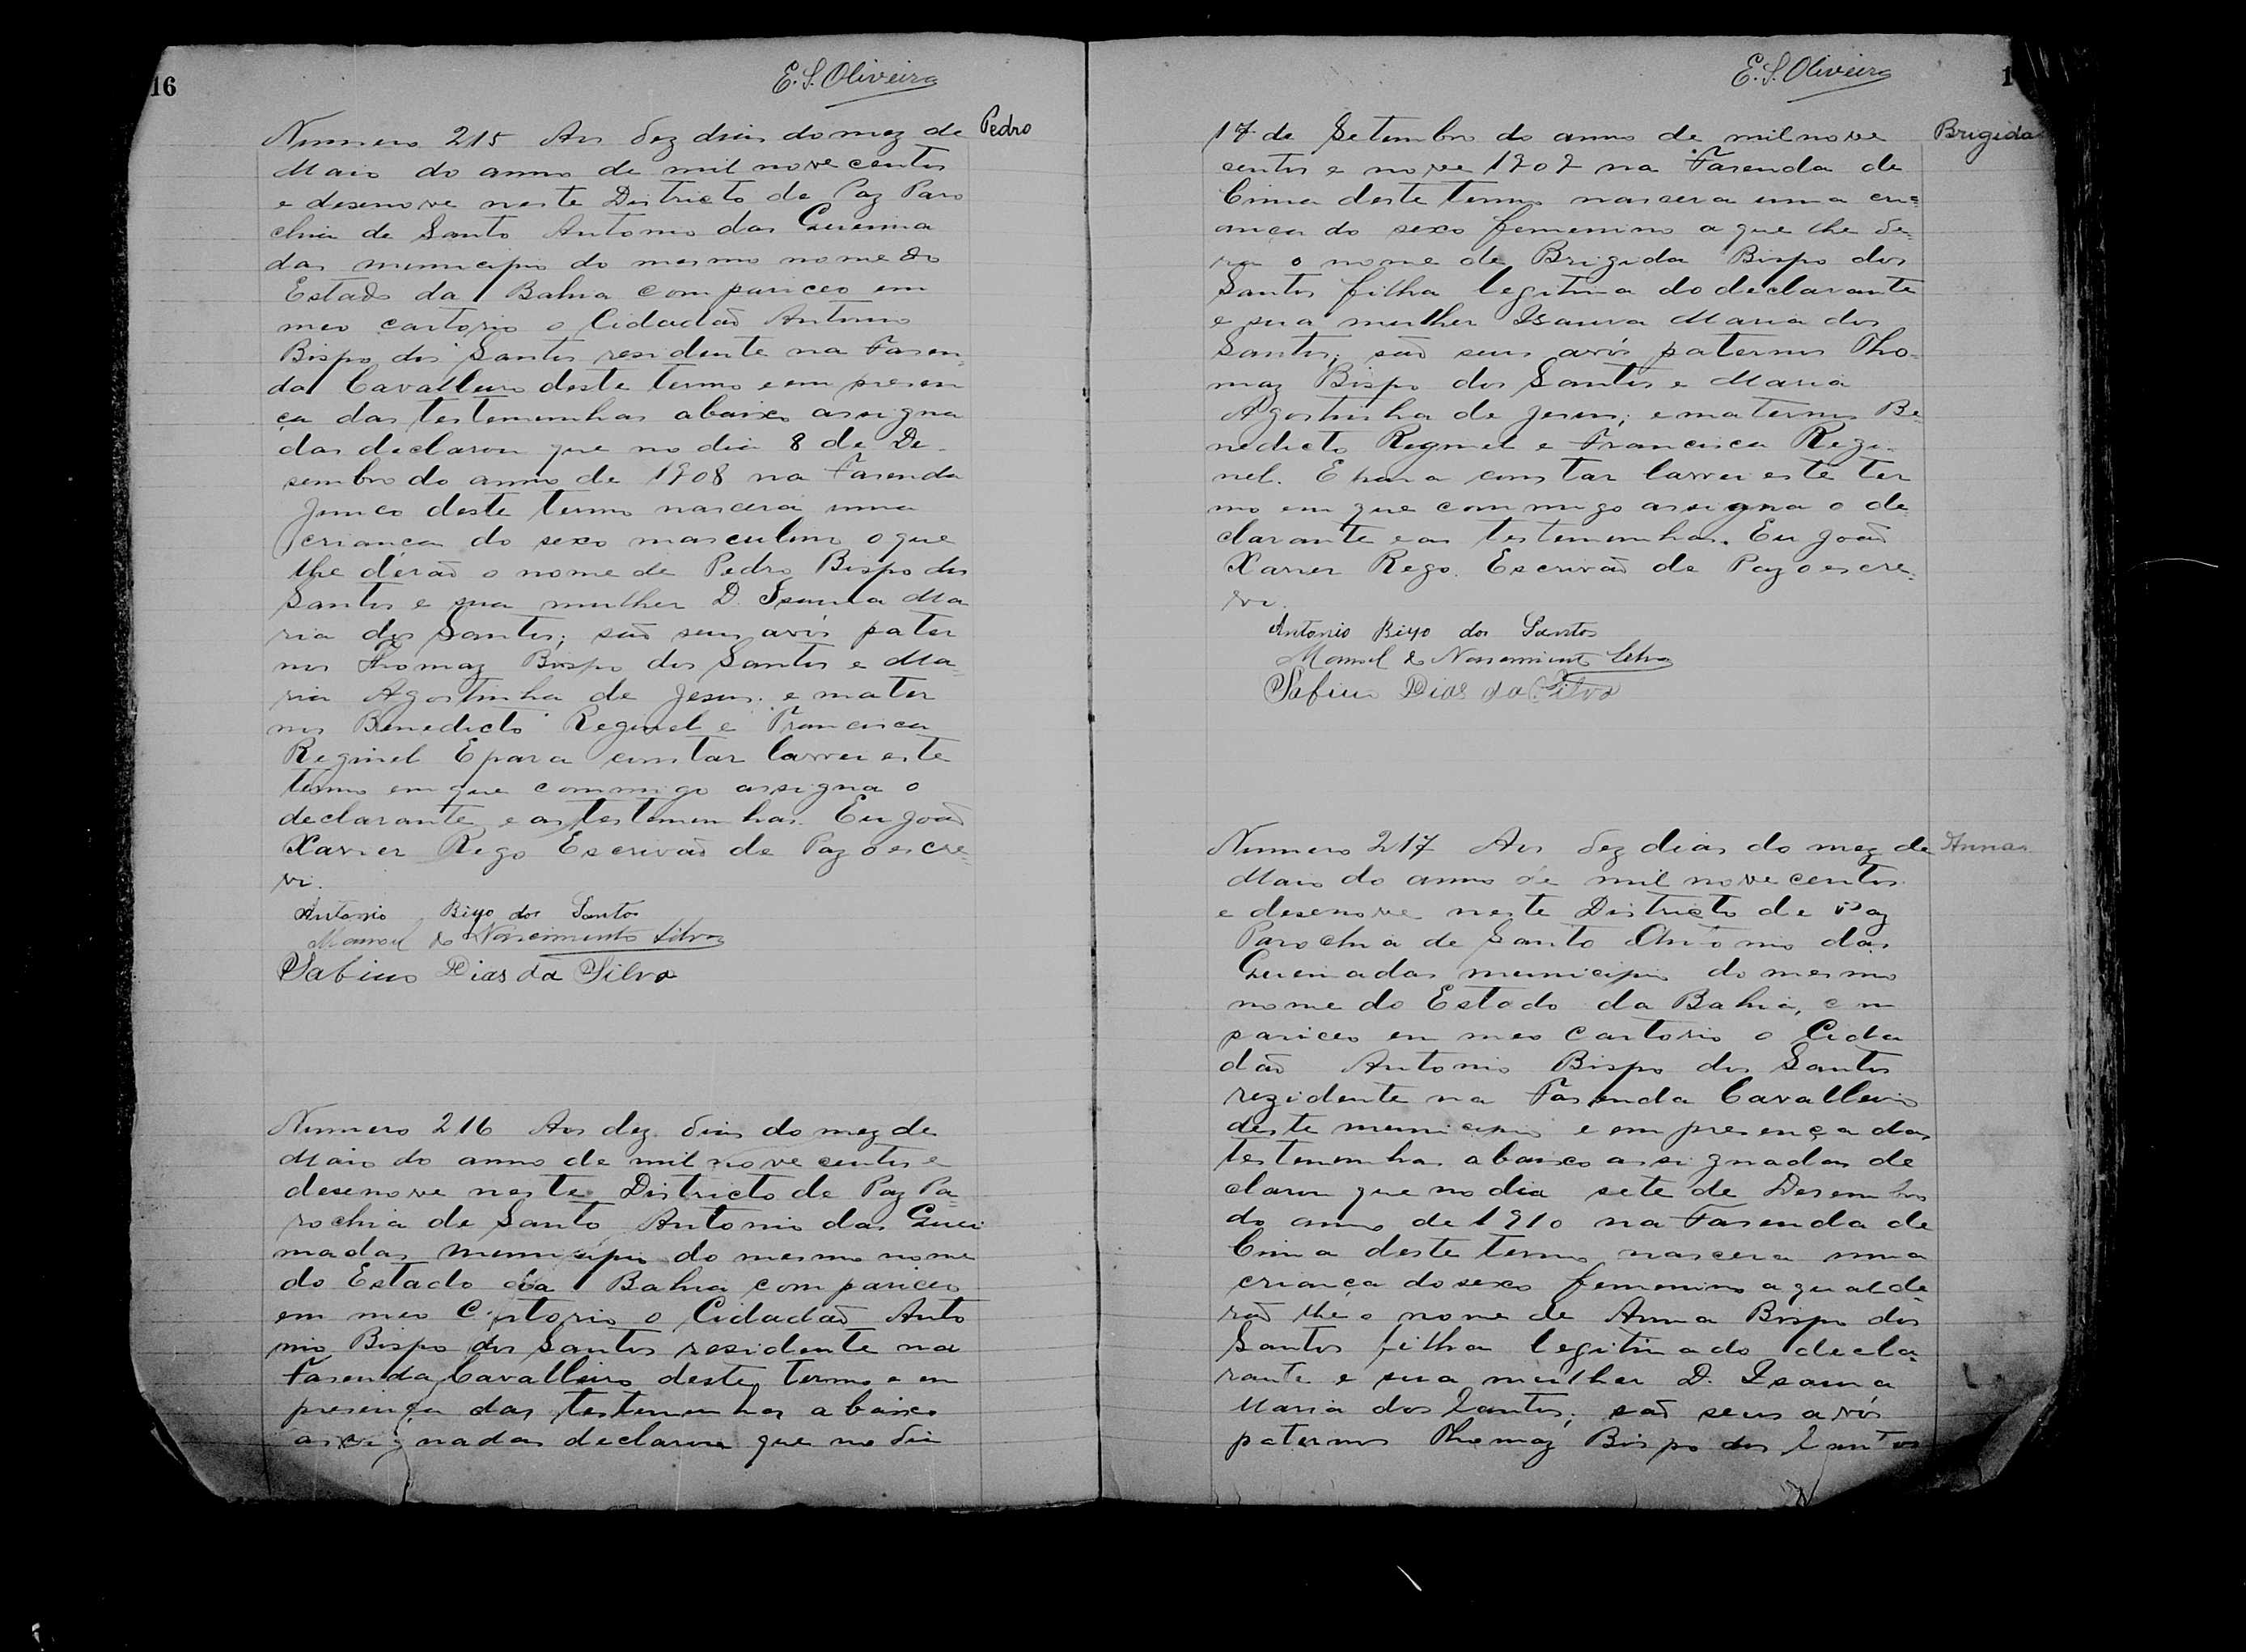 16
E. S. Oliveira
Numero 215 Aos dez dias do mez de
Pedro
Maio do anno de mil nove centos
e desenove neste Districto de Paz Paro
chia de Santo Antonio das Queima
das municipio do mesmo nome do
Estado da Bahia compariceo em
meo cartorio o Cidadaõ Antonio
Bispo dos Santos residente na Fasen
da Cavalleiro deste termo e em presen
ça das testemunhas abaixo assigna
das declarou que no dia 8 de De
sembro do anno de 1908 na Fasenda
Junco deste termo nascera uma
criança do sexo masculino o que
lhe déraõ o nome de Pedro Bispo dos
Santos e sua mulher D. Isaura Ma
ria dos Santos; saõ seus avós pater
nos Thomaz Bispo dos Santos e Ma
ria Agostinha de Jesus; e mater
nos Benedicto Reginel e Francisca
Reginel E para constar lavrei este
termo em que commigo assigna o
declarante e as testemunhas. Eu Joaõ
Xavier Rego Escrivaõ de Paz o escre=
vi.
Antonio Bispo dos Santos
Manoel do Nascimento Silva
Sabino Dias da Silva
Numero 216 Aos dez dias do mez de
Maio do anno de mil nove centos e
desenove neste Districto de Paz Pa=
rochia de Santo Antonio das Quei
madas municipio do mesmo nome
do Estado da Bahia compariceo
em meo Cartorio o Cidadaõ Anto
nio Bispo dos Santos residente na
Fasenda Cavalleiro deste termo e em
presença das testemunhas abaixo
assignadas declarou que no dia
E. S. Oliveira
1
17 de Setembro do anno de mil nove
Brigida
centos e nove 1909 na Fasenda de
Cima deste termo nascera uma cri=
ança do sexo femenino a que lhe de=
ra o nome de Brigida Bispo dos
Santos filha legitima do declarante
e sua mulher Isaura Maria dos
Santos; saõ seus avós paternos Tho=
maz Bispo dos Santos e Maria
Agostinha de Jesus; e maternos Be=
nedicto Reginel e Francisca Regi=
nel. E para constar lavrei este ter
mo em que commigo assigna o de
clarante e as testemunhas. Eu Joaõ
Xavier Rego. Escrivaõ de Paz o escre=
vi.
Antonio Bispo dos Santos
Manoel do Nascimento Silva
Sabino Dias da Silva
Numero 217 Aos dez dias do mez de
Anna
Maio do anno de mil nove centos
e desenove neste Districto de Paz
Parochia de Santo Antonio das
Queimadas municipio do mesmo
nome do Estado da Bahia, com
pariceo em meo cartorio o Cida
daõ Antonio Bispo dos Santos
rezidente na Fasenda Cavalleiro
deste municipio e em presença das
testemunhas abaixo assignadas de
clarou que no dia sete de Desembro
do anno de 1910 na Fasenda de
Cima deste termo nascera uma
criança do sexo femenino a qual dé=
raõ lhe o nome de Anna Bispo dos
Santos filha legitima do decla=
rante e sua mulher D. Isaura
Maria dos Santos; saõ seus avós
paternos Thomaz Bispo dos Santos